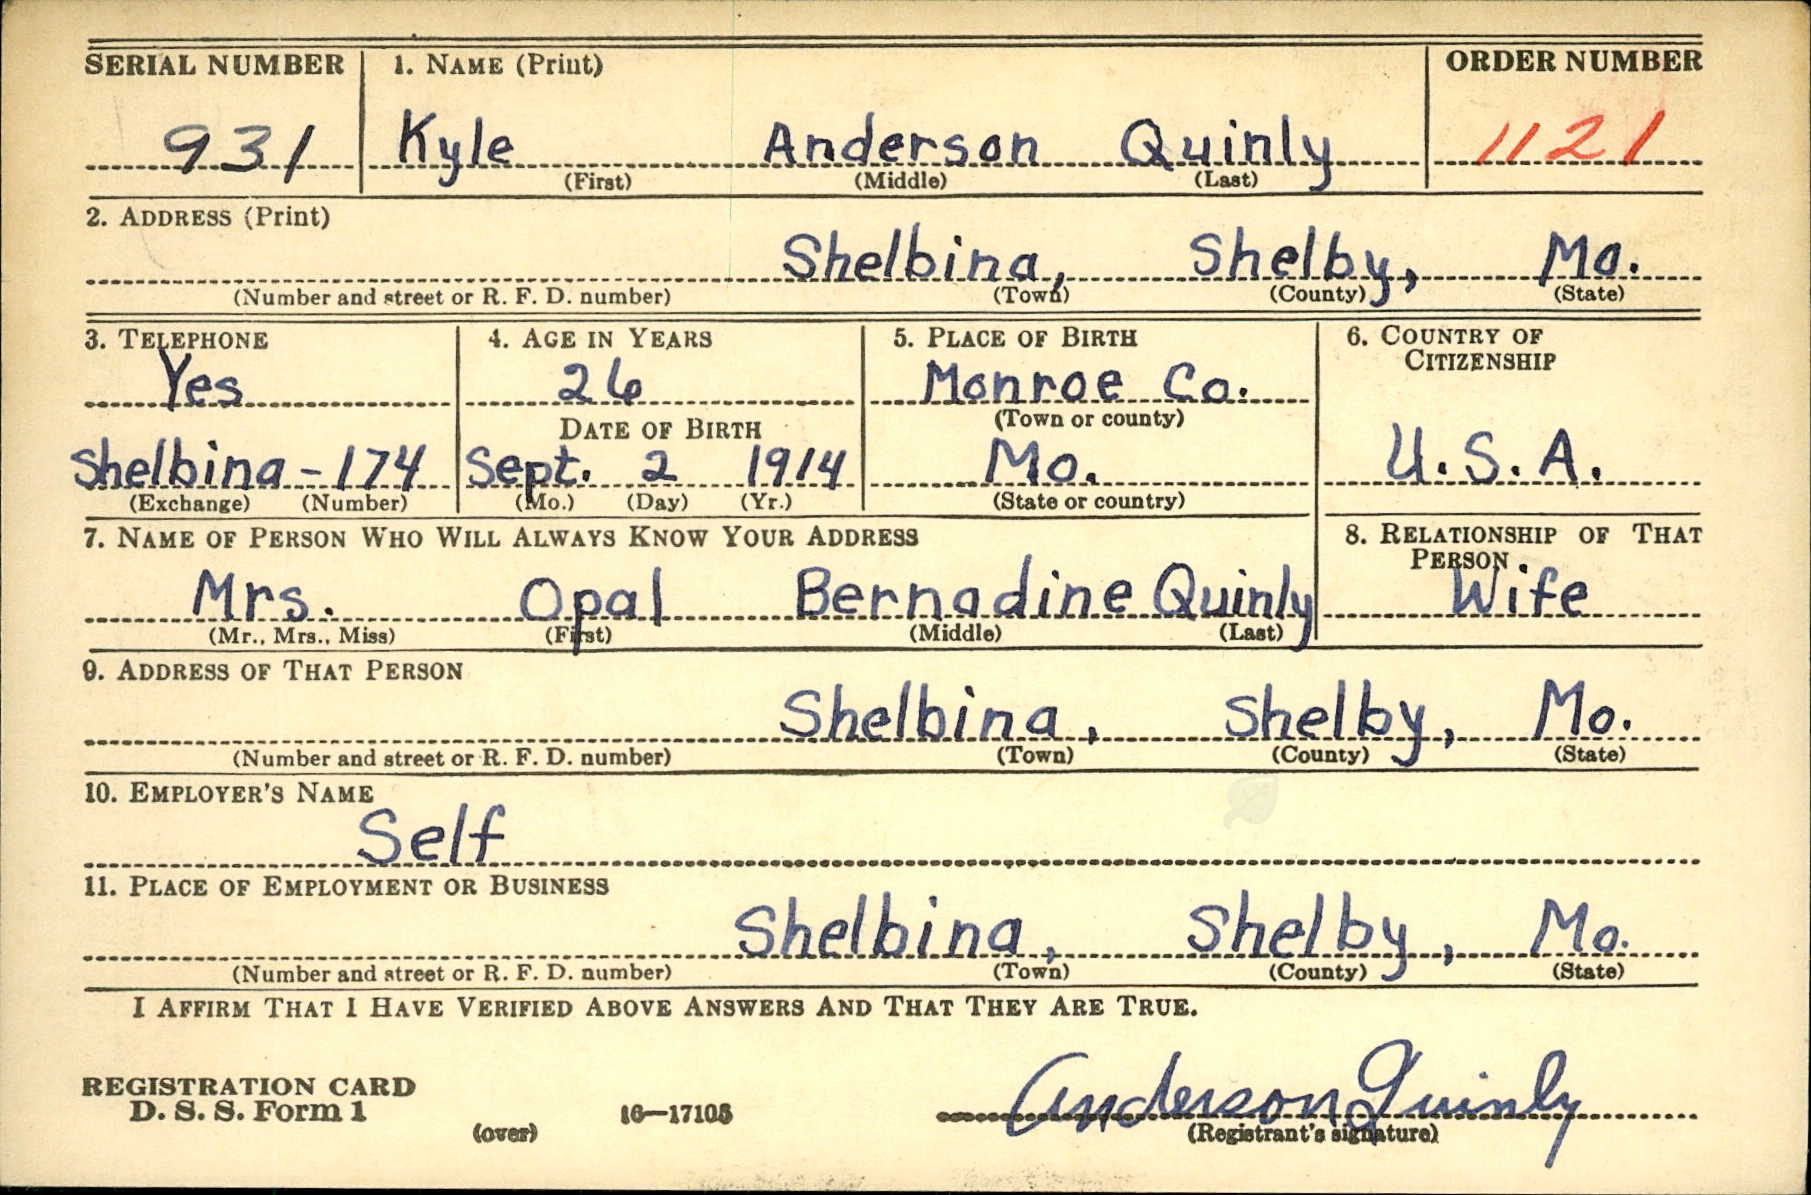 SERIAL NUMBER 1. NAME (Print) ORDER NUMBER
931 Kyle Anderson Quinly 1121
(First) (Middle) (Last)
2. ADDRESS (Print)
Shelbina, Shelby, Mo.
(Number and street or R. F. D. number) (Town) (County) (State)
3. TELEPHONE 4. AGE IN YEARS 5. PLACE OF BIRTH 6. COUNTRY OF
CITIZENSHIP
Yes 26 Monroe Co.
(Town or county)
DATE OF BIRTH
Shelbina - 174 Sept. 2 1914 Mo. U.S.A.
(Exchange) (Number) (Mo.) (Day) (Yr.) (State or country)
7. NAME OF PERSON WHO WILL ALWAYS KNOW YOUR ADDRESS 8. RELATIONSHIP OF THAT
PERSON
Mrs. Opal Bernadine Quinly Wife
(Mr., Mrs., Miss) (First) (Middle) (Last)
9. ADDRESS OF THAT PERSON
Shelbina, Shelby, Mo.
(Number and street or R. F. D. number) (Town) (County) (State)
10. EMPLOYER'S NAME
Self
11. PLACE OF EMPLOYMENT OR BUSINESS
Shelbina, Shelby, Mo.
(Number and street or R. F. D. number) (Town) (County) (State)
I AFFIRM THAT I HAVE VERIFIED ABOVE ANSWERS AND THAT THEY ARE TRUE.
REGISTRATION CARD
D. S. S. Form 1 16—17105 Anderson Quinly
(over) (Registrant's signature)